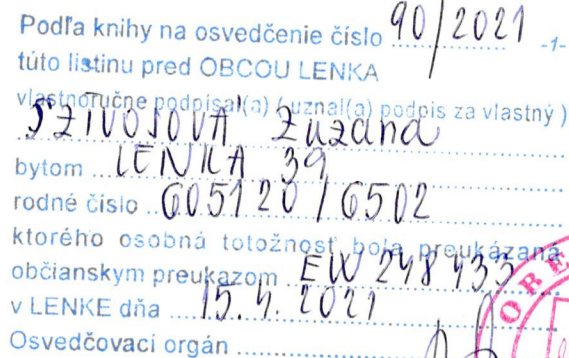 Podľa knihy na osvedčenie číslo 90/2021 -1-
túto listinu pred OBCOU LENKA
vlastnoručne podpísal(a) (uznal(a) podpis za vlastný)
Zuzana
bytom LENKA 39
rodné číslo 605120/6502
ktorého osobná totožnosť bola preukázaná
občianskym preukazom EW 248 433
v LENKE dňa 15.4.2021
Osvedčovací orgán
OBE